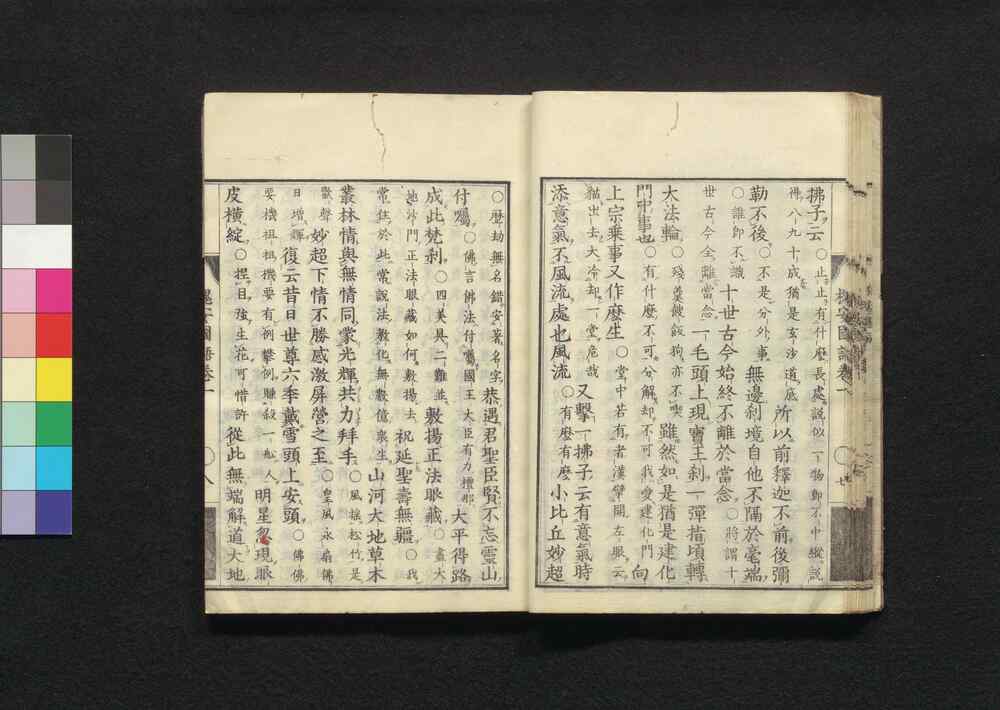 拂子云○止止有什麼長處說似一物即不中縱說
得八九十成猶是玄沙道底所以前釋迦不前後彌
勒不後○不是分外事無邊刹境自他不隔於毫端
○誰即不識十世古今始終不離於當念○將謂十
世古今全離當念一毛頭上現寶王刹一彈指頃轉
大法輪○殘羹餿飯狗亦不喫雖然如是猶是建化
門中事也○有什麼不可分解却不可我愛建化門向
上宗乘事又作麼生○堂中若有者漢擘開左眼云
貓出去大冷却一堂危哉又擊一拂子云有意氣時
添意氣不風流處也風流○有麼有麼小比丘妙超
槐安國語卷一
○歷劫無名錯安著名字恭遇君聖臣賢不忘靈山
付囑○佛言佛法付囑國王大臣有力檀那大平得路
成此梵刹○四美具二難並敷揚正法眼藏○盡大
地沙門正法眼藏如何敷揚去祝延聖壽無疆○我
常在於此常說法教化無數億衆生山河大地草木
叢林情與無情同蒙光輝共力拜手○風搖松竹是
歡聲妙超下情不勝感激屏營之至○皇風永扇佛
日增輝復云昔日世尊六年戴雪頭上安頭○佛佛
要機祖祖機要有例攀例賺殺一船人明星忽現眼
皮橫綻○捏目強生花可惜許從此無端解道大地
槐安國語卷一
○八